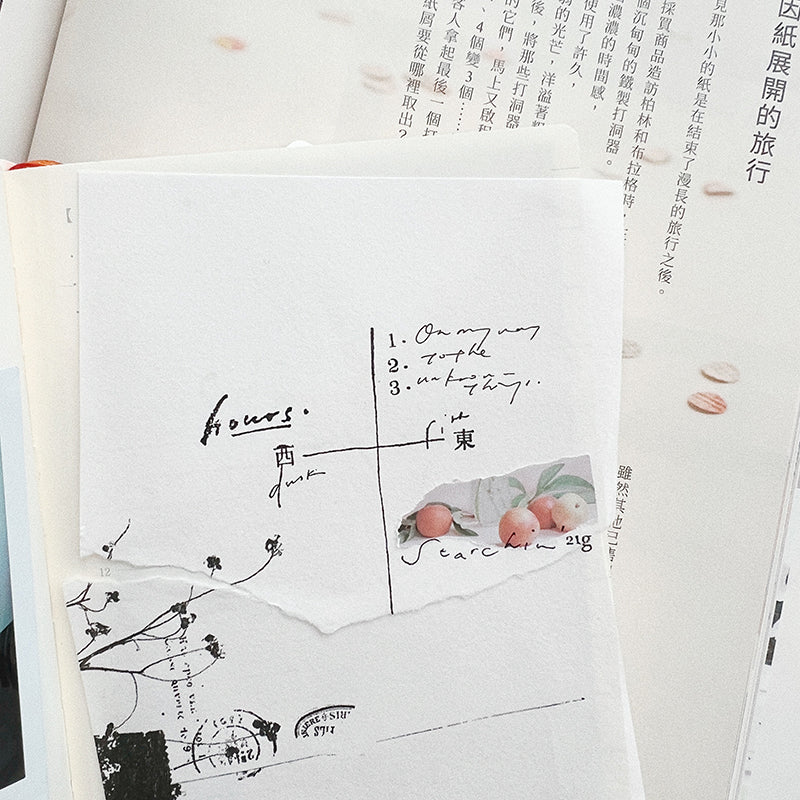 因紙展開的旅行
見那小小的紙是在結束了漫長的旅行之後。
採買商品造訪柏林和布拉格時，在
個沉甸甸的鐵製打洞器。
濃濃的時間感，
使用了許久，
的光芒，洋溢著
後，將那些打洞器
的它們，馬上又啟程
、4個變3個……
客人拿起最後一個打
紙屑要從哪裡取出？
雖然其他已
1. On my way
2. to the
3. unknown
things..
hours.
西 東
dusk
21g
12